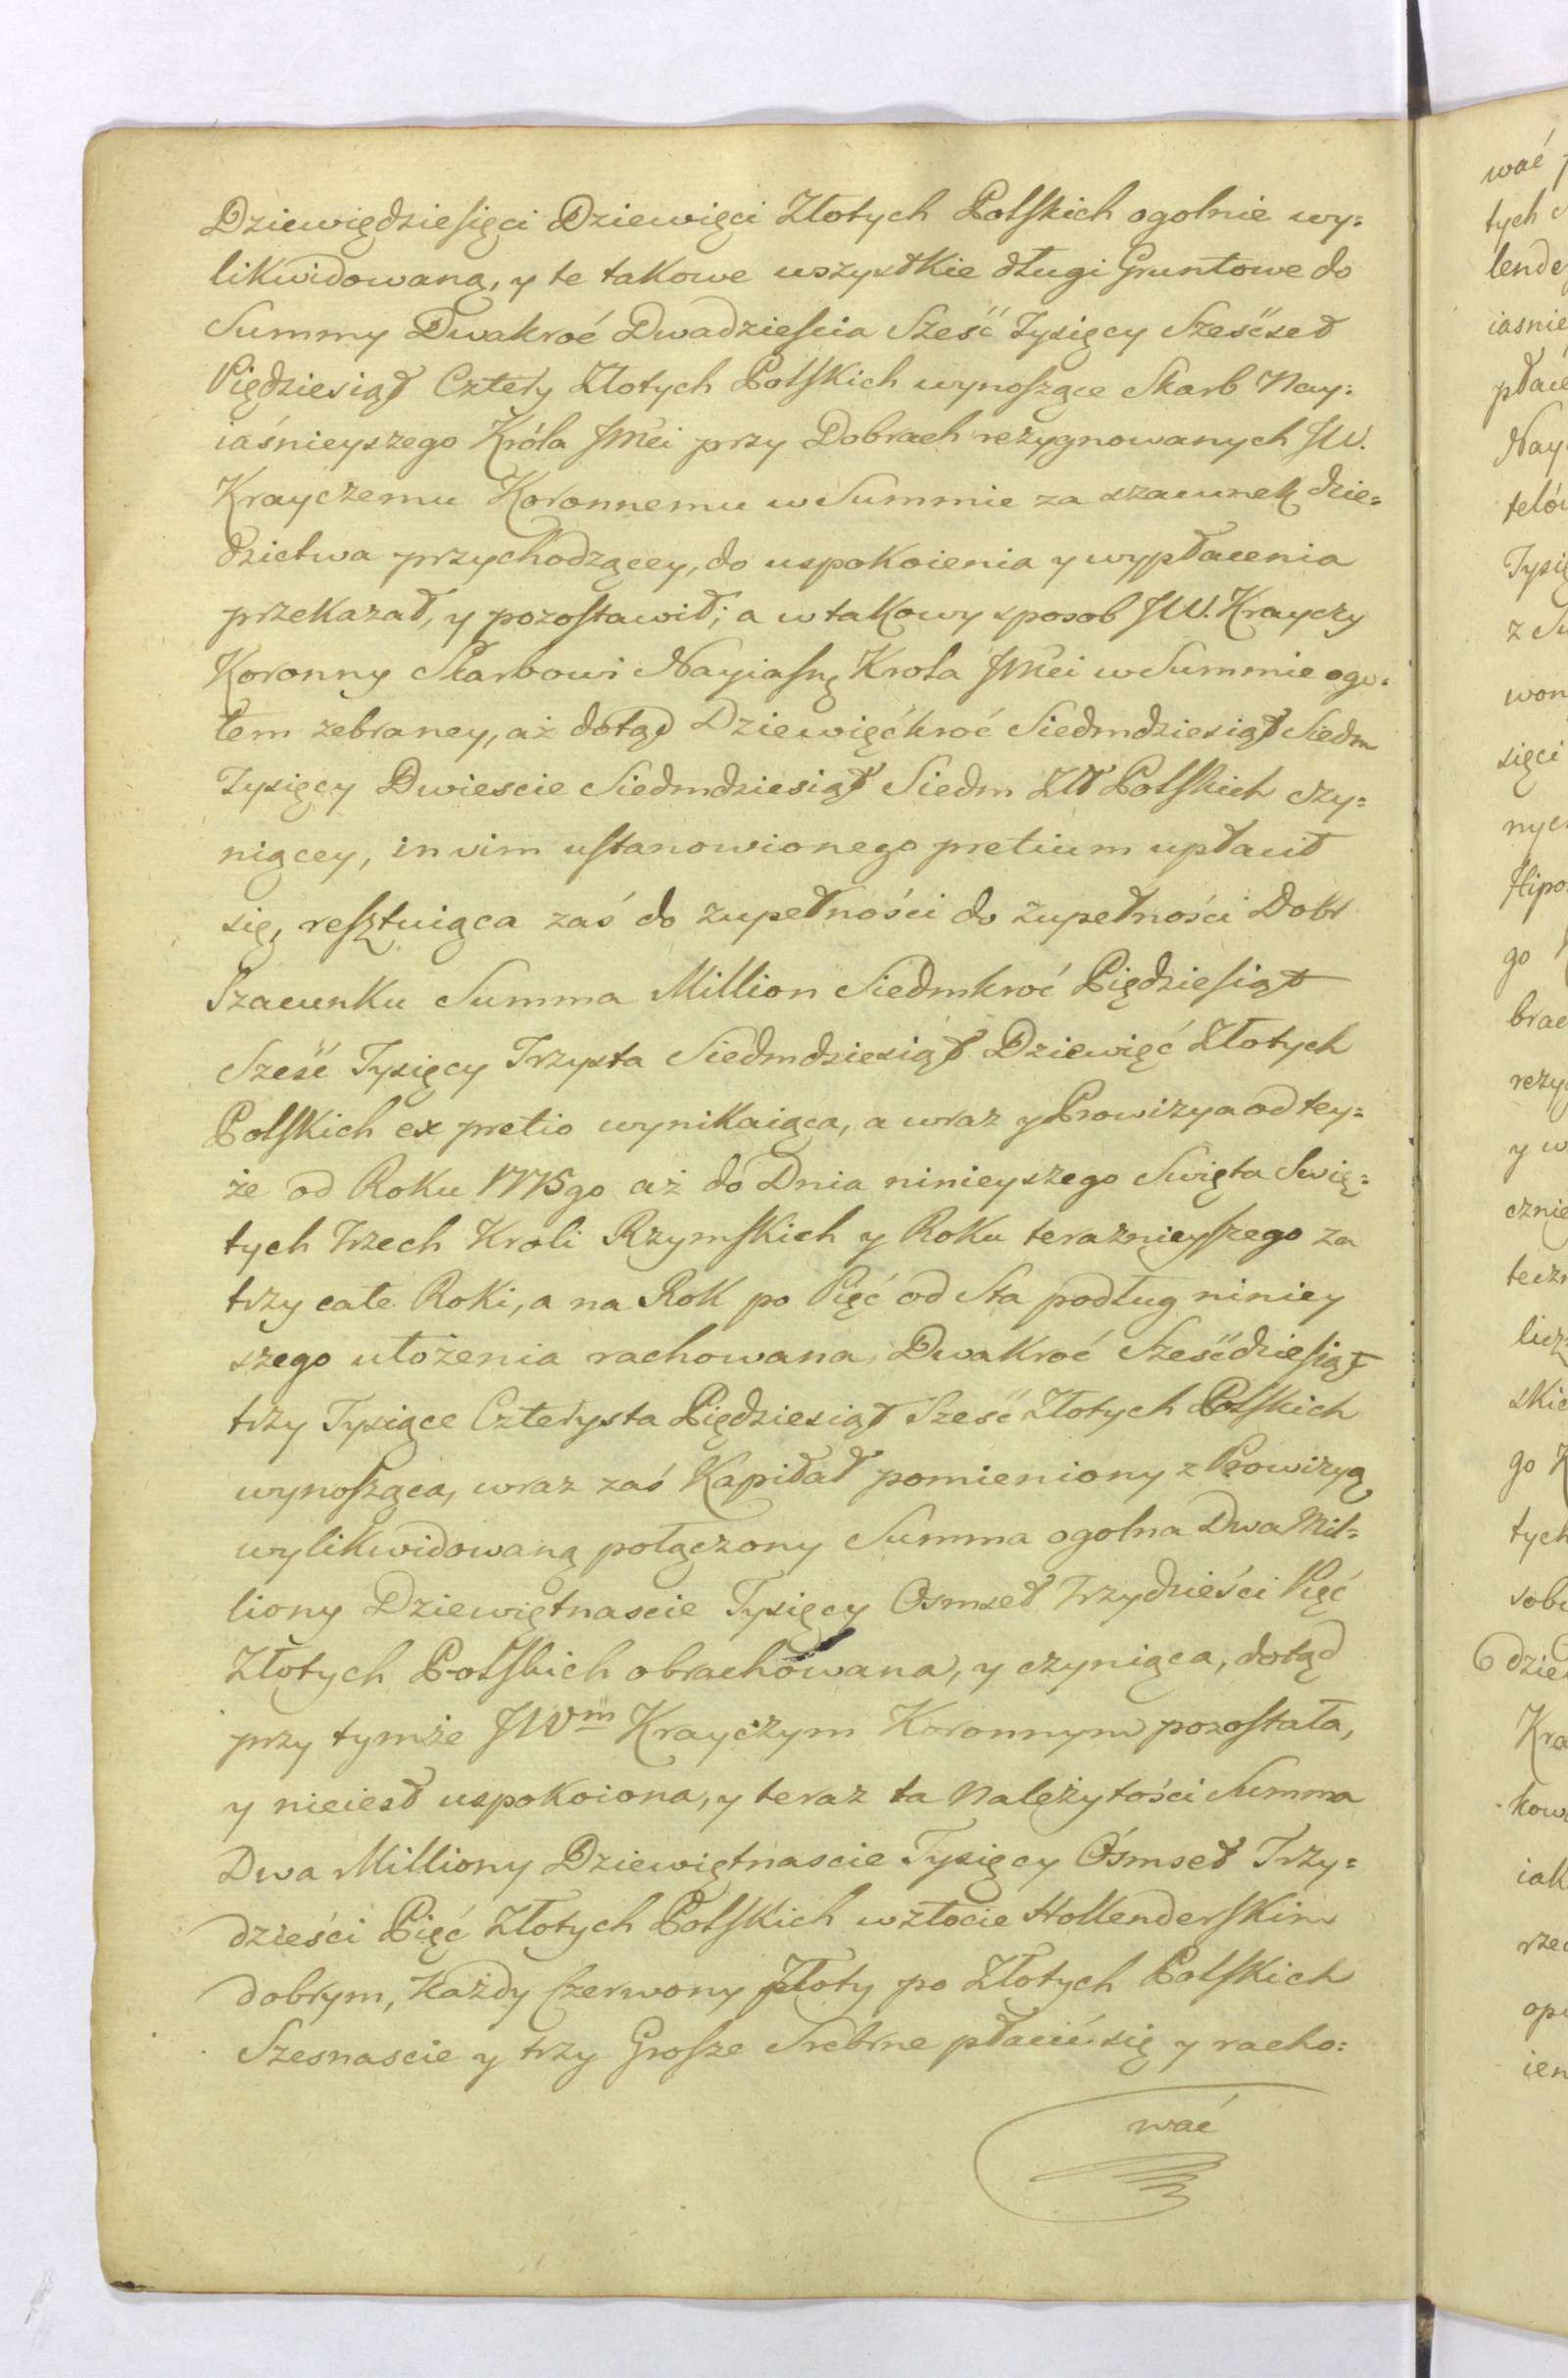 Dziewiędziesięci Dziewięci Złotych Polskich ogolnie wy:
likwidowaną, y te takowe wszystkie długi Gruntowe do
Summy Dwakroć Dwadzieścia Sześć Tysięcy Sześćset
PięDziesiąt Cztery Złotych Polskich wynoszące Skarb Nay:
iaśnieyszego Króla JMci przy Dobrach rezygnowanych JW.
Krayczemu Koronnemu w Summie za szacunek dzie=
dzictwa przychodzącey, do uspokoienia y wypłacenia
przekazał, y pozostawił; a w takowy sposob JW. Krayczy
Koronny Skarbowi Nayiasnę Krola JMci w Summie ogu:
łem zebraney, aż dotąd Dziewięćkroć Siedmdziesiąt Siedm
Tysięcy Dwiescie Siedmdziesiąt Siedm Złł Polskich czy:
niącey, in vim ustanowionego pretium upłacił
się, resztuiąca zaś do zupełności do zupełności Dobr
Szacunku Summa Million Siedmkroć Piędziesiąt
Sześć Tysięcy Trzysta Siedmdziesiąt Dziewięć Złotych
Polskich ex pretio wynikaiąca, a wraz y Prowizya od tey:
że od Roku 1775go aż do Dnia ninieyszego Swięta Swię:
tych Trzech Kroli Rzymskich y Roku terazнieyszego za
trzy całe Roki, a na Rok po Pięć od Sta podług niniey
szego ułożenia rachowana, Dwakroć Sześćdziesiąt
trzy Tysiące Czterysta Piędziesiąt Sześć Złotych Polskich
wynosząca, wraz zaś Kapitał pomieniony z Prowizyą
wylikwidowaną połączony Summa ogolna Dwa Mil=
liony Dziewiętnascie Tysięcy Osmset Trzydzieści Pięć
Złotych Polskich obrachowana, y czyniąca, dotąd
przy tymże JWm Krayczym Koronnym pozostała,
y nieiest uspokoiona, y teraz ta Należytości Summa
Dwa Milliony Dziewiętnascie Tysięcy Ósmset Trzy=
dzieści Pięć Złotych Polskich w złocie Hollenderskim
dobrym, każdy Czerwony Złoty po Złotych Polskich
Szesnascie y trzy Grosze Srebrne płacić się y racho:
wać
wać
tych
lende
iasnie
płace
Nay
Tysię
z Su
won
sięci
nych
Hipo
go
brac
rezy
y w
cznie
skie
go K
tych
sobi
dzie
Kra
kow
iak